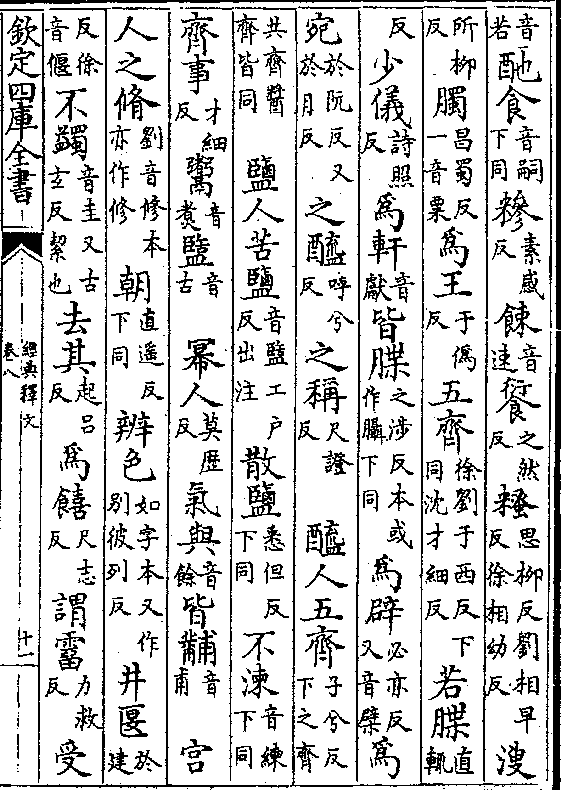 音若酏食音嗣下同糝素感反餗音速餰之然反糔思柳反劉相早反徐相幼反溲
所柳反臅昌蜀反一音粟爲王于僞反五齊徐劉于西反下同沈才細反若牒直輒
反少儀詩照反爲軒音獻皆牒之涉反本或作牑下同爲辟必亦反又音檗爲
宛於阮反又於月反之醯呼兮反之稱尺證反醯人五齊子兮反下之齊
共齊醬齊皆同鹽人苦鹽音盬工戶反出注散鹽悉但反下同不湅音練下同
齊事才細反鬻音煑盬音古冪人莫歷反氣與音餘皆黼音甫宮
人之脩劉音修本亦作修朝直遥反下同辨色如字本又作别彼列反井匽於建
反徐音偃不蠲音圭又古玄反絜也去其起吕反爲饎尺志反謂霤力救反受
欽定四庫全書
經典釋文
卷八
十一